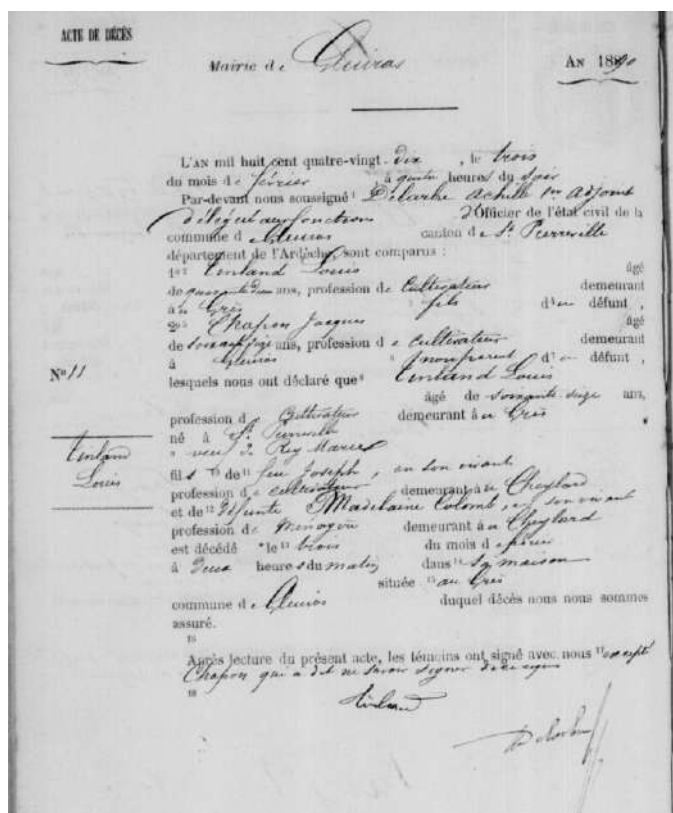 ACTE DE DÉCÈS
Mairie de Gluiras
AN 1890
L'AN mil huit cent quatre-vingt-dix, le trois
du mois de février à quatre heures du soir
Par-devant nous soussigné 1 Delarbre Achille 1er adjoint
délégué aux fonctions d'Officier de l'état civil de la
commune de Gluiras canton de St Pierreville
département de l'Ardèche, sont comparus :
1° 2 Tinland Louis âgé
de quarante ans, profession de Cultivateur demeurant
à au Grès fils du défunt,
2° 5 Chapon Jacques âgé
de soixante ans, profession de cultivateur demeurant
à Gluiras non parent du défunt,
N° 11
lesquels nous ont déclaré que 8 Tinland Louis
âgé de soixante-seize ans,
profession de Cultivateur demeurant à au Grès
né à St Pierreville
veuf de Rey Marie
Tinland
Louis
fils 10 de 11 feu Joseph, en son vivant
profession de cultivateur demeurant à au Cheylard
et de 12 défunte Madelaine Colomb, en son vivant
profession de Ménagère demeurant à au Cheylard
est décédé le 13 trois du mois de février
à deux heures du matin dans 14 sa maison
située 15 au Grès
commune de Gluiras duquel décès nous nous sommes
assuré.
16
Après lecture du présent acte, les témoins ont signé avec nous 17 excepté
Chapon qui a dit ne savoir signer de ce requis
18
Tinland
Delarbre